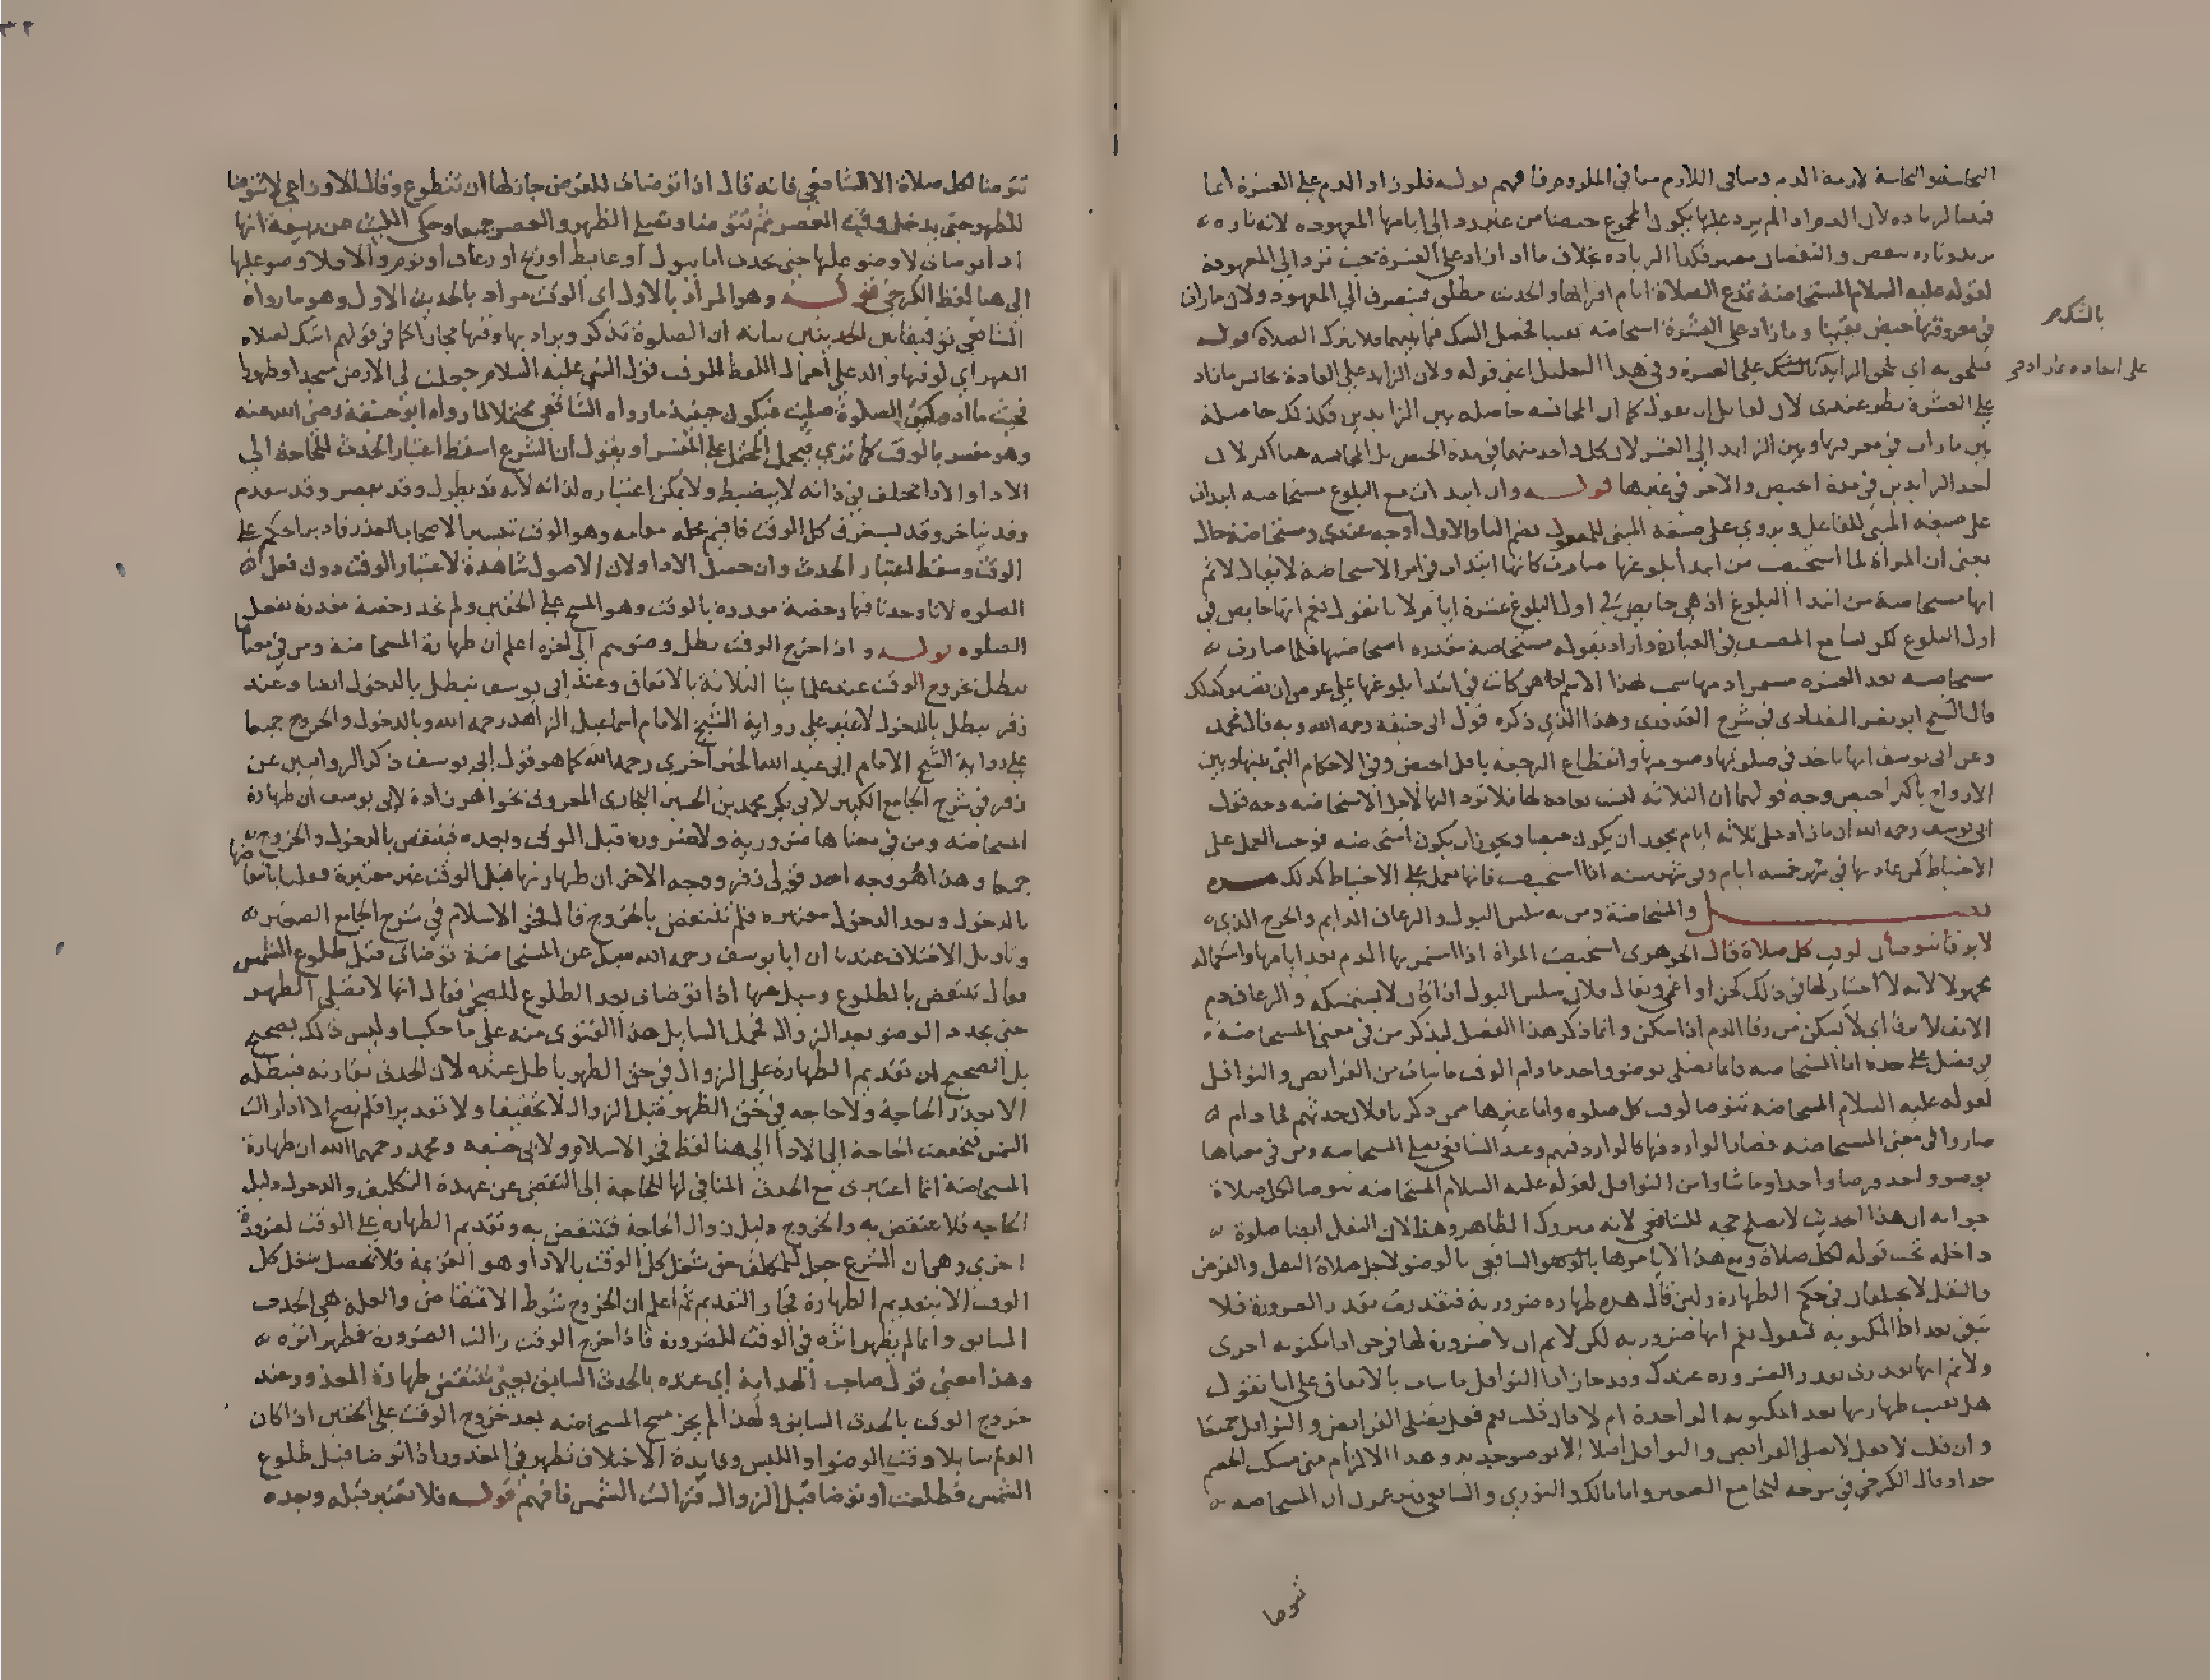 فيما لزيادة لان الدم اذا لم يزد عليها يكون المجموع حيضا من غير رد الى ايامها المعهودة لانه تارة
يزيد وتارة ينقص والنقصان معتبر فكذا الزيادة بخلاف ما اذا زاد على العشرة حيث ترد الى المعهودة
لقوله عليه السلام المستحاضة تدع الصلاة ايام اقرائها والحديث مطلق فينصرف الى المعهود ولان ما رات
في معروفتها حيض بيقين وما زاد على العشرة استحاضة
بالشك
على العشرة نظر عندي لان لقائل ان يقول كما ان المجانسة حاصلة بين الزايدين فكذلك حاصلة
بين ما رات في معروفها وبين الزايد الى العشر لان كل واحد منهما في مدة الحيض بل المجانسة هنا اكثر لان
احد الزايدين في مدة الحيض والاخر في غيرها قوله وان ابتدات مع البلوغ مستحاضة ابتدات
على صيغة المبني للفاعل ويروى على صيغة المبني للمفعول بضم التا والاول اوجه عندي ومستحاضة حال
يعني ان المراة لما استحيضت من ابتدا بلوغها صارت كانها ابتدات في امر الاستحاضة لا يقال لا نم
انها مستحاضة من ابتدا البلوغ اذ هي حايض في اول البلوغ عشرة ايام لانا نقول نعم انها حايض في
اول البلوغ لكن تسامح المصنف في العبارة واراد بقوله مستحاضة مقدرة استحاضتها فلما صارت
قال الشيخ ابو نصر البغدادي في شرح القدوري وهذا الذي ذكره قول ابي حنيفة رحمه الله وبه قال محمد
وعن ابي يوسف انها تاخذ في صلوتها وصومها وانقطاع الرجعة باقل الحيض وفي الاحكام التي بينها وبين
الازواج باكثر الحيض وجه قولهما ان الثلاثة ليست بعادة لها فلا ترد اليها لاجل الاستحاضة وجه قول
ابي يوسف رحمه الله ان ما زاد على ثلاثة ايام يجوز ان يكون حيضا ويجوز ان يكون استحاضة فوجب العمل على
الاحتياط كمن عادتها في شهر خمسة ايام وفي شهر ستة اذا استحيضت فانها تعمل على الاحتياط كذلك هذه
فصل والمستحاضة ومن به سلس البول والرعاف الدايم والجرح الذي
لا يرقا يتوضاون لوقت كل صلاة قال الجوهري استحيضت المراة اذا استمر بها الدم بعد ايامها واستعماله
مجهولا لانه لا اختيار لها في ذلك كجن او اغمي ويقال فلان سلس البول اذا كان لا يستمسكه والرعاف دم
الانف لا يرقا اي لا يسكن من رقا الدم اذا سكن وانما ذكر هذا الفصل لبذكر من في معنى المستحاضة
في فصل على حدة اما المستحاضة فانها تصلي بوضو واحد ما دام الوقت ما شات من الفرايض والنوافل
لقوله عليه السلام المستحاضة تتوضا لوقت كل صلوة واما غيرها ممن ذكر فلان حدثهم لما دام
صاروا في معنى المستحاضة فصار الوارد فيها كالوارد فيهم وعند الشافعي تصلي المستحاضة ومن في معناها
بوضو واحد فرضا واحدا وما شاوا من النوافل لقوله عليه السلام المستحاضة تتوضا لكل صلاة
جوابه ان هذا الحديث لا يصلح حجة للشافعي لانه متروك الظاهر وهذا لان النفل ايضا صلوة
داخلة تحت قوله لكل صلاة ومع هذا لا يامرها الشافعي بالوضو لاجل صلاة النفل والفرض
والنفل لا يختلفان في حكم الطهارة ولين قال هذه طهارة ضرورية فتتقدرت بقدر الضرورة فلا
تبقى بعد ادا المكتوبة فنقول نعم انها ضرورية لكن لا نم ان لا ضرورة لها في حق ادا مكتوبة اخرى
ولا نم انها تقدرت بقدر الضرورة عندك وقد جاز ادا النوافل ما شات بالاتفاق على انا نقول
هل بقيت طهارتها بعد المكتوبة الواحدة ام لا فان قلت نعم فقل تصلي الفرايض والنوافل جميعا
وان قلت لا فقل لا تصلي الفرايض والنوافل اصلا الا بوضو جديد وهذا الالزام متى مسكت الخصم
جدا وقال الكرخي في شرحه للجامع الصغير واما مالك والثوري والشافعي فيقولون ان المستحاضة
تتوضا
تتوضا لكل صلاة الا الشافعي فانه قال اذا توضات للفرض جاز لها ان تتطوع وقال الاوزاعي لا تتوضا
للظهر حتى يدخل وقت العصر ثم تتوضا وتصلي الظهر والعصر جميعا وحكى الليث عن ربيعة انها
اذا توضات لا وضو عليها حتى تحدث اما ببول او غايط او ريح او رعاف او نوم والا فلا وضو عليها
الى هنا لفظ الكرخي قوله وهو المراد بالاول اي الوقت مراد بالحديث الاول وهو ما رواه
الشافعي توفيقا بين الحديثين بيانه ان الصلوة تذكر ويراد بها وقتها مجازا كما في قولهم اتيك لصلاة
الظهر اي لوقتها والدال على احتمال اللفظ للوقت قول النبي عليه السلام جعلت لي الارض مسجدا وطهورا
فحيث ما ادركتني الصلوة صليت فيكون حينئذ ما رواه الشافعي محتملا لما رواه ابو حنيفة رضي الله عنه
وهو مفسر بالوقت كما ترى فيحمل المحتمل على المفسر او يقول ان الشرع اسقط اعتبار الحدث للحاجة الى
الادا والادا مختلف في ذاته لا ينضبط ولا يمكن اعتباره لذاته لانه قد يطول وقد يقصر وقد يتقدم
وقد يتاخر وقد يستغرق كل الوقت فاقيم محله مقامه وهو الوقت تيسيرا لاصحاب العذر فادير الحكم على
الوقت وسقط اعتبار الحدث وان حصل الادا ولان الاصول شاهدة لاعتبار الوقت دون فعل
الصلوة لانا وجدنا فيها رخصة مقدرة بالوقت وهو المسح على الخفين ولم نجد رخصة مقدرة بفعل
الصلوة قوله واذا خرج الوقت بطل وضوهم الى اخره اعلم ان طهارة المستحاضة ومن في معناها
تبطل بخروج الوقت عند علماينا الثلاثة بالاتفاق وعند ابي يوسف تبطل بالدخول ايضا وعند
زفر تبطل بالدخول لا غير على رواية الشيخ الامام اسماعيل الزاهد رحمه الله وبالدخول والخروج جميعا
على رواية الشيخ الامام ابي عبد الله الخيزاخزي رحمه الله كما هو قول ابي يوسف ذكر الروايتين عن
زفر في شرح الجامع الكبير لابي بكر محمد بن الحسين البخاري المعروف بخواهر زاده لابي يوسف ان طهارة
المستحاضة ومن في معناها ضرورية ولا ضرورة قبل الوقت وبعده فينتقض بالدخول والخروج
جميعا وهذا هو وجه احد قولي زفر ووجه الاخر ان طهارتها قبل الوقت غير معتبرة
بالدخول وبعد الدخول معتبرة فلم تنتقض بالخروج قال فخر الاسلام في شرح الجامع الصغير
وتاويل الاختلاف عندنا ان ابا يوسف رحمه الله سيل عن المستحاضة توضات قبل طلوع الشمس
فقال تنتقض بالطلوع وسيل عنها اذا توضات بعد الطلوع للضحى فقال انها لا تصلي الظهر
حتى تجدد الوضو بعد الزوال فحمل السايل هذا الفتوى منه على ما حكينا وليس ذلك بصحيح
بل الصحيح ان تقديم الطهارة على الزوال في حق الظهر باطل عنده لان الحدث يقارنه فيبطله
الا بعذر الحاجة ولا حاجة في حق الظهر قبل الزوال لا تحقيقا ولا تقديرا فلم تصح اذا زالت
الشمس تحققت الحاجة الى الادا الى هنا لفظ فخر الاسلام ولابي حنيفة ومحمد رحمهما الله ان طهارة
المستحاضة انما اعتبرت مع الحدث المنافي لها للحاجة الى التقصي عن عهدة التكليف والدخول دليل
الحاجة فلا تنتقض به والخروج دليل زوال الحاجة فتنتقض به وتقديم الطهارة على الوقت لضرورة
اخرى وهي ان الشرع جعل للمكلف حق شغل كل الوقت بالادا وهو العزيمة فلا يحصل شغل كل
الوقت الا بتقديم الطهارة فجاز التقديم ثم اعلم ان الخروج شرط الانتقاض والعلة هي الحدث
السابق وانما لم يظهر اثره في الوقت للضرورة فاذا خرج الوقت زالت الضرورة فظهر اثره
وهذا معنى قول صاحب الهداية اي عنده بالحدث السابق يعني تنتقض طهارة المعذور عند
خروج الوقت بالحدث السابق ولهذا لم يجز مسح المستحاضة بعد خروج الوقت على الخفين اذا كان
الدم سايلا وقت الوضو او اللبس وفايدة الاختلاف تظهر في المعذور اذا توضا قبل طلوع
الشمس فطلعت او توضا قبل الزوال فزالت الشمس فافهم قوله فلا تعتبر قبله وبعده